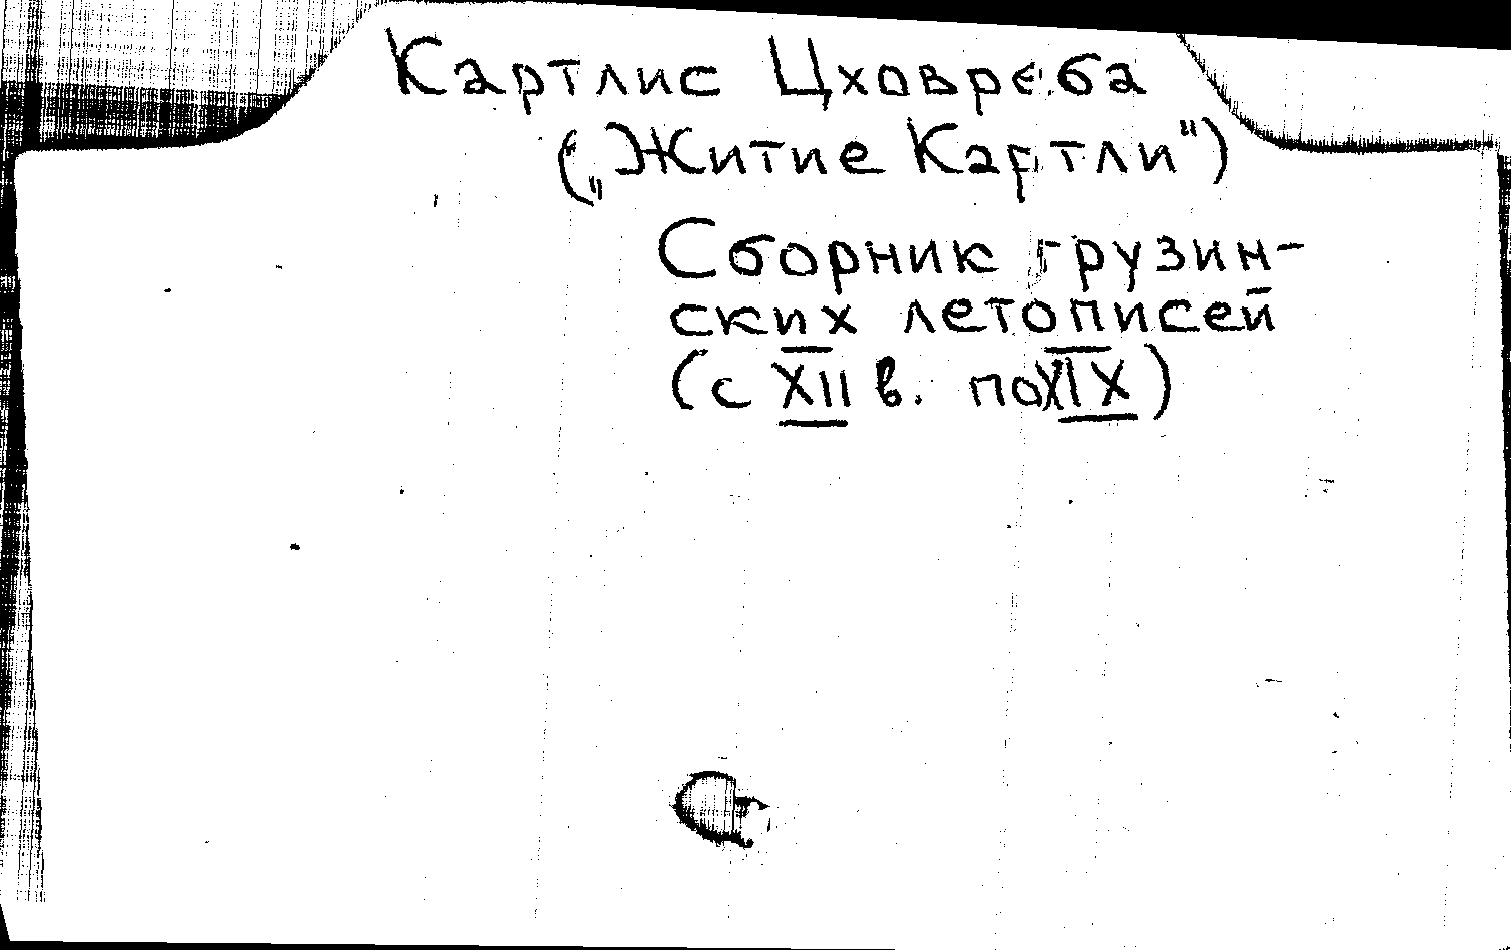 Картлис Цховреба
(„Житие Картли")
Сборник грузин-
ских летописей
(с XII в. по XIX)